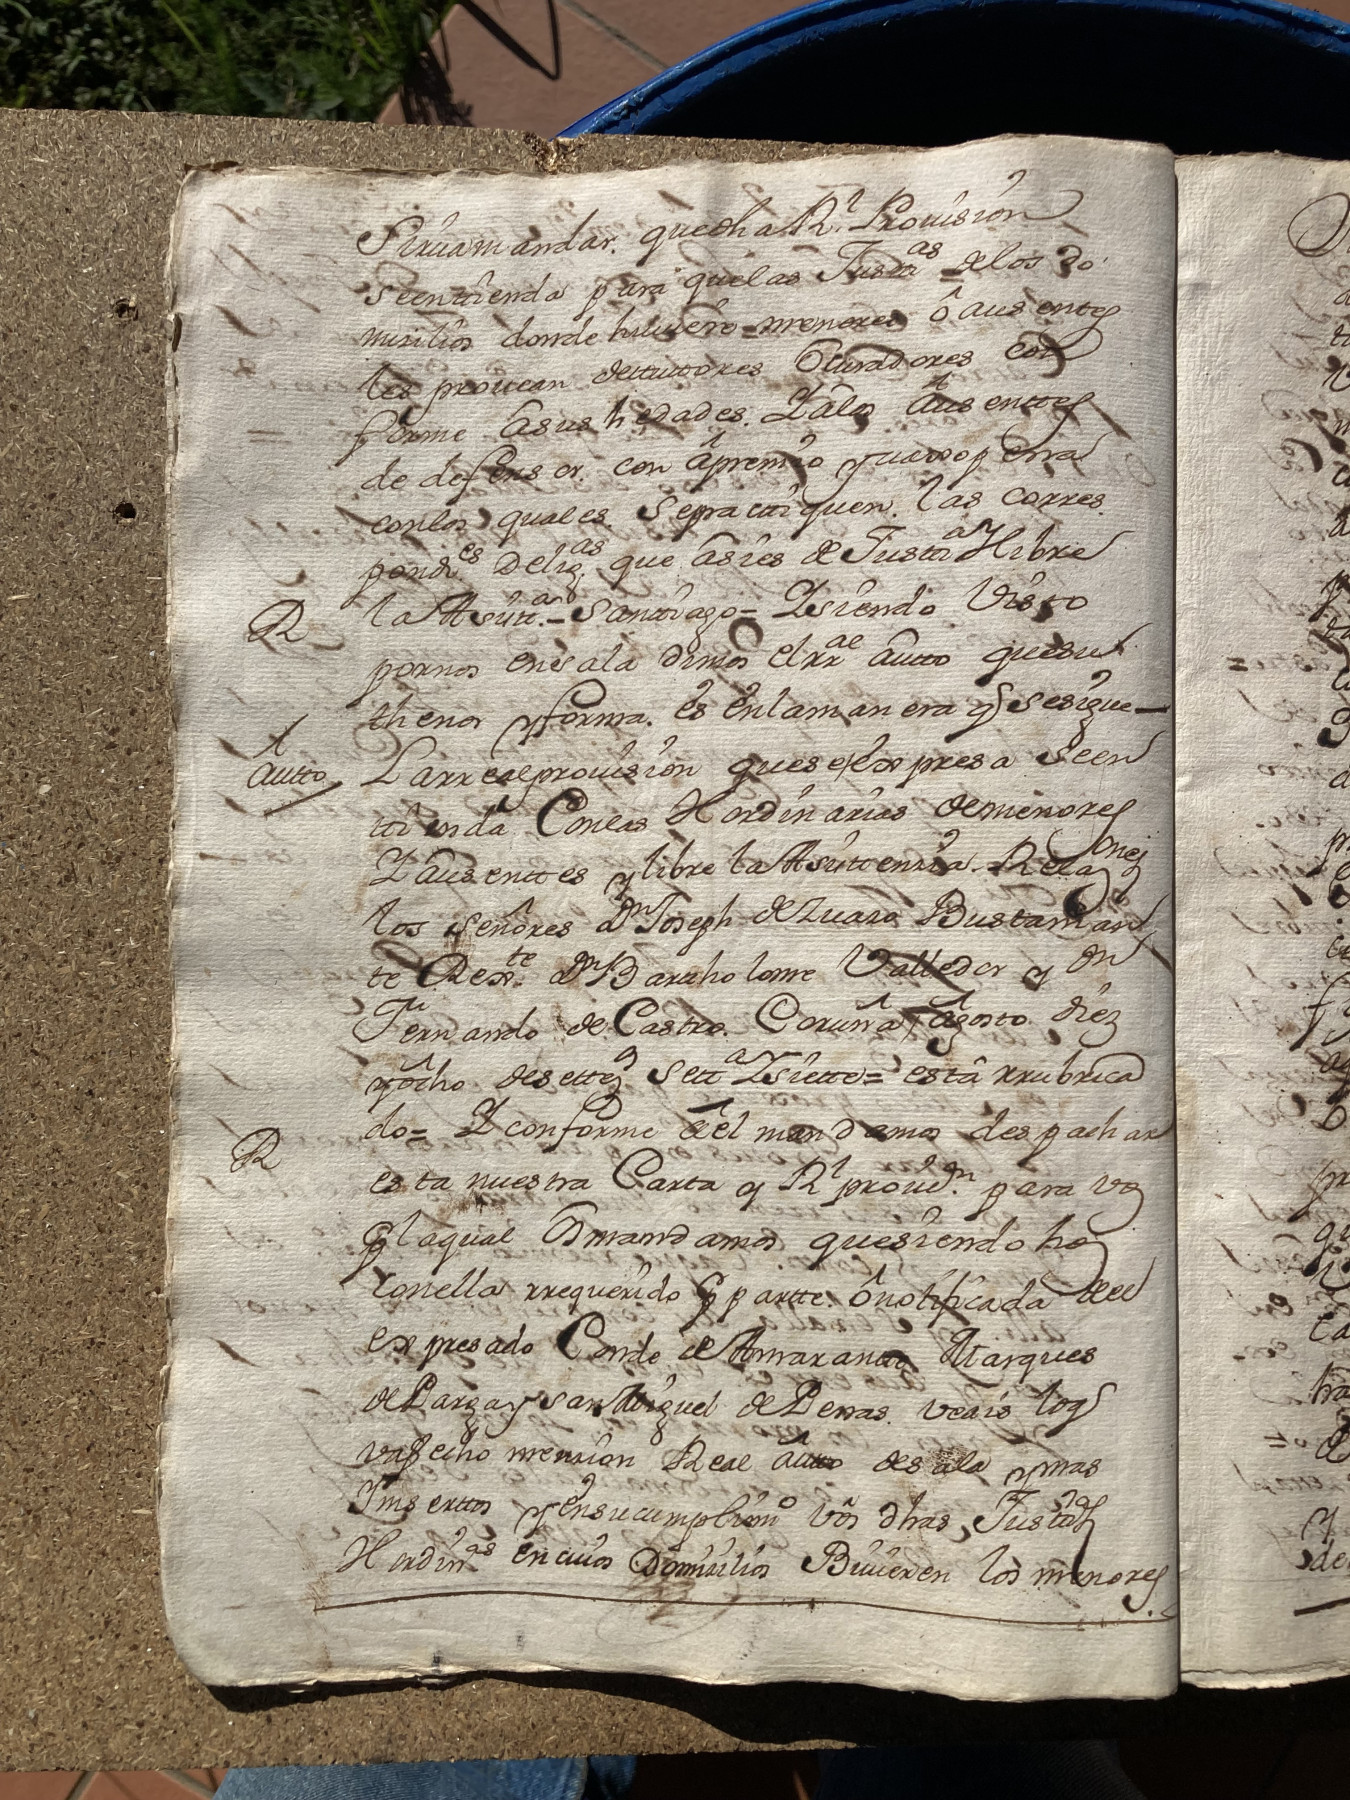 Siruamandar. quedha Rl. Prouision
Seentienda para quelas Justas de los do
misilios donde huuiere menores ô ausentes
les prouean de tutores Curadores con
forme asus hedades. Y alos Ausenttes
de defensor. con âpremio
conlos quales. Sepractiquen. las corres
pondes Deligas que asies de Justa Y libre
la Asútta.– Santiago= Y siendo Visto
R
pornos enesala dimos el rrae Autto quesu
thenor y forma. es enlamanera q Sesigue–
Autto
La rrealprouision que se expresa Seen
ttienda Conlas Hordinarias demenores
Y ausenttes y libre la Asúttenzia Relazones
los señores Dn Joseph de Zuazo Bustaman
te Rexte. Dn Bartholome Valledor y Dn
Fernando de Castro. Coruña Agosto diez
yôcho desettez settta Y siette= estâ rrubrica
do= Y conforme âel mandamos despachar
R
esta nuestra Carta y Rl prouon. para vos
pr laqual mandamos quesiendo hos
conella rrequerido pr partte ônotificada del
expresado Conde de Amarante Marques
de Parga y san Miguel de Penas. veais los
vafecho menzion Real âutto desala ymas
Insertos y ensucumplimto Vos dhas Justas
Hordinas encuios Domisilios Biuieren los menores